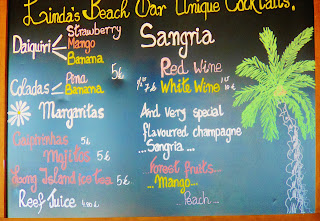 Linda's Beach Bar Unique Cocktails!
Daiquiri
Strawberry
Mango
Banana
5€
Coladas
Pina
Banana
Margaritas
Caipirinhas 5€
Mojitos 5€
Long Island ice tea 5€
Reef Juice 4.80€
Sangria
Red Wine
White Wine
And Very special
flavoured champagne
...Sangria...
...Forest fruits...
...Mango...
...Peach...